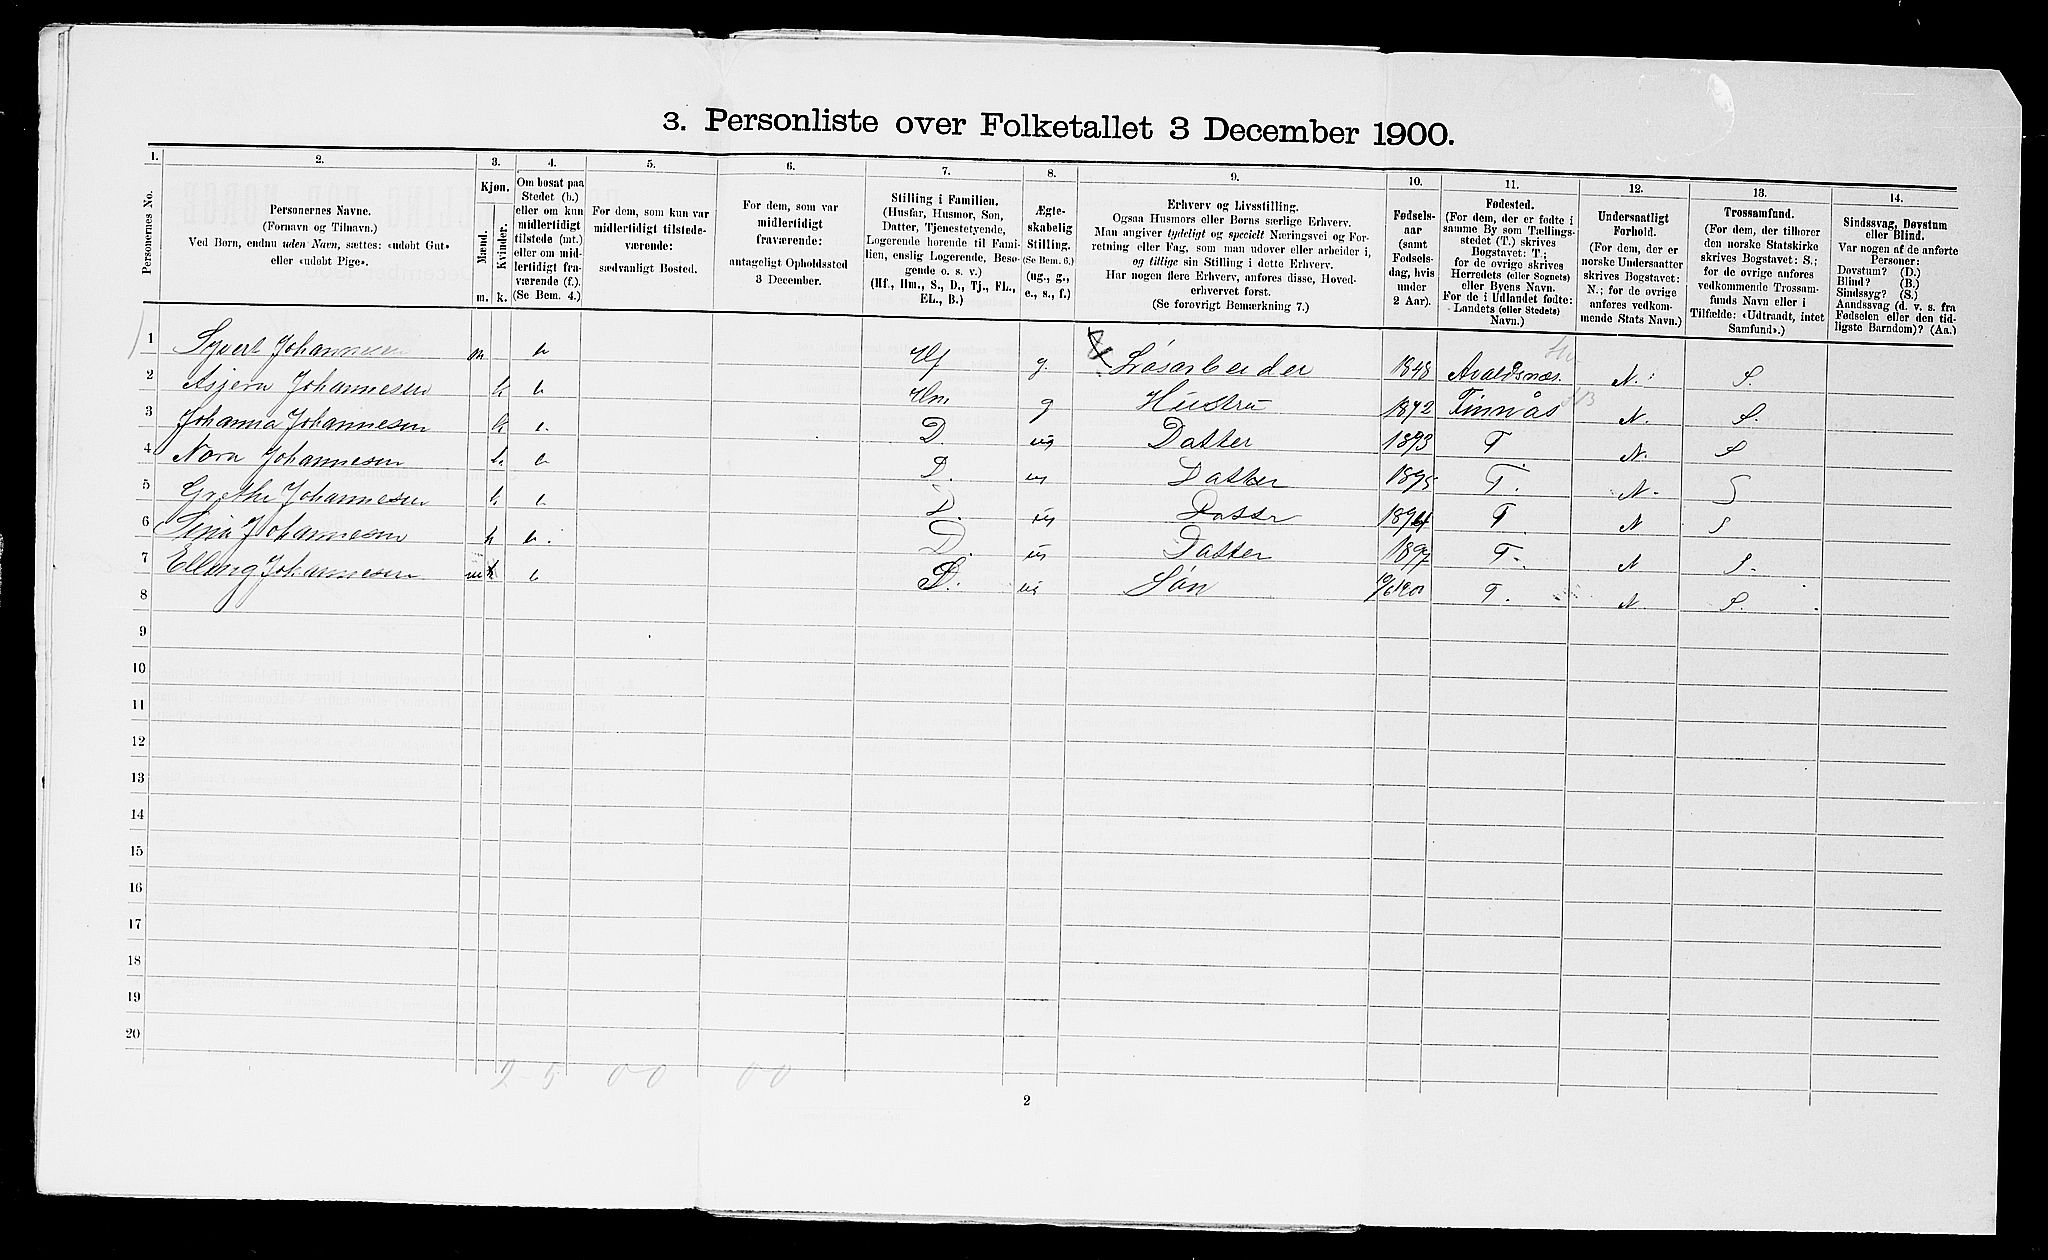 3. Personliste over Folketallet 3 December 1900.
1. 2. 3. 4. 5. 6. 7. 8. 9. 10. 11. 12. 13. 14.
Personernes No.
Personernes Navne.
(Fornavn og Tilnavn.)
Ved Børn, endnu uden Navn, sættes: «udøbt Gut»
eller «udøbt Pige».
Kjøn.
Mænd.
Kvinder.
m. k.
Om bosat paa
Stedet (b.)
eller om kun
midlertidigt
tilstede (mt.)
eller om mid-
lertidigt fra-
værende (f.).
(Se Bem. 4.)
For dem, som kun var
midlertidigt tilstede-
værende:
sædvanligt Bosted.
For dem, som var
midlertidigt
fraværende:
antageligt Opholdssted
3 December.
Stilling i Familien.
(Husfar, Husmor, Søn,
Datter, Tjenestetyende,
Logerende hørende til Fami-
lien, enslig Logerende, Besø-
gende o. s. v.)
(Hf., Hm., S., D., Tj., FL.,
EL., B.)
Ægte-
skabelig
Stilling.
(Se Bem. 6.)
(ug., g.,
e., s., f.)
Erhverv og Livsstilling.
Ogsaa Husmors eller Børns særlige Erhverv.
Man angiver tydeligt og specielt Næringsvei og For-
retning eller Fag, som man udøver eller arbeider i,
og tillige sin Stilling i dette Erhverv.
Har nogen flere Erhverv, anføres disse, Hoved-
erhvervet først.
(Se forøvrigt Bemærkning 7.)
Fødsels-
aar
(samt
Fødsels-
dag, hvis
under
2 Aar).
Fødested.
(For dem, der er fødte i
samme By som Tællings-
stedet (T.) skrives
Bogstavet: T.;
for de øvrige skrives
Herredets (eller Sognets)
eller Byens Navn.
For de i Udlandet fødte:
Landets (eller Stedets)
Navn.)
Undersaatligt
Forhold.
(For dem, der er
norske Undersaatter
skrives Bogstavet:
N.; for de øvrige
anføres vedkom-
mende Stats Navn.)
Trossamfund.
(For dem, der tilhører
den norske Statskirke
skrives Bogstavet: S.;
for de øvrige anføres
vedkommende Trossam-
funds Navn eller i
Tilfælde: «Udtraadt, intet
Samfund».)
Sindssvag, Døvstum
eller Blind.
Var nogen af de anførte
Personer:
Døvstum? (D.)
Blind? (B.)
Sindssyg? (S.)
Aandssvag (d. v. s. fra
Fødselen eller den tid-
ligste Barndom)? (Aa.)
1 Syvert Johannesen m b Hf g. Løsarbeider 1848 Avaldsnæs. N. S.
2 Asjera Johannesen k b Hm g Hustru 1872 Finnås N. S.
3 Johanna Johannesen k b D. ug Datter 1893 T N. S
4 Nora Johannesen k. b D. ug Datter 1895 T. N. S
5 Grethe Johannesen k b D. ug Datter T N S
6 Sina Johannesen k b. D. ug Datter 1897 T. N S.
7 Elling Johannesen m b ug Søn T. N S.
8
9
10
11
12
13
14
15
16
17
18
19
20
2-5 00 00
2